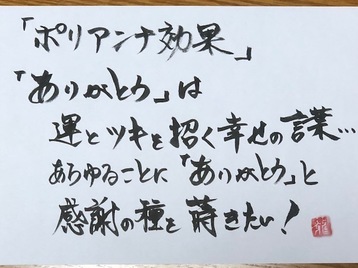 「ポリアンナ効果」
「ありがとう」は
運とツキを招く幸せの言葉…
あらゆることに「ありがとう」と
感謝の種を蒔きたい!